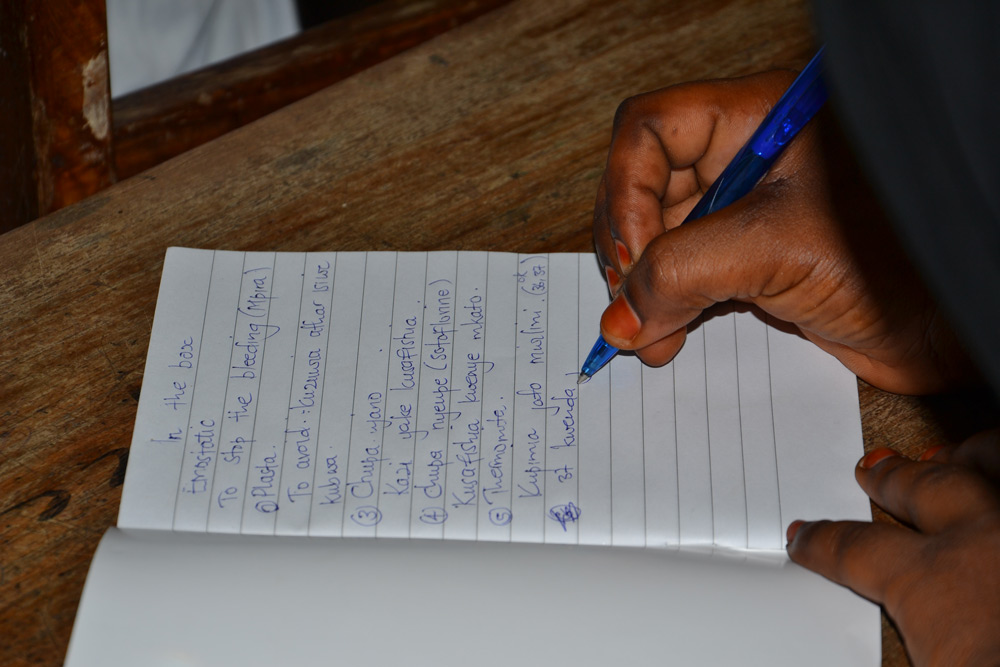 In the box
Emostatic
To stop the bleeding (Mpira)
② Plasta.
To avoid: Kuzuwia athar isiwe
kubwa.
③ Chupa njano
Kazi yake kusafishia.
④ Chupa nyeupe (sotoflorine)
Kusafishia kwenye mkato.
⑤ Thermomita.
Kupimia joto mwilini. (36, 37) ok
37 kwenda